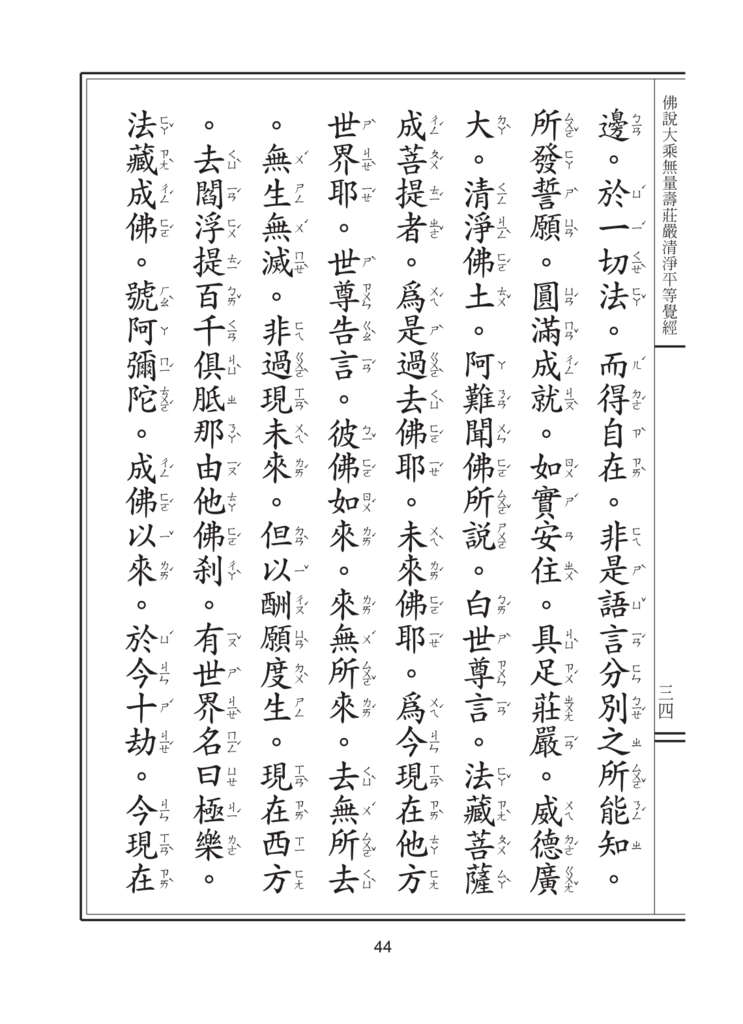 佛說大乘無量壽莊嚴清淨平等覺經
三四
邊。於一切法。而得自在。非是語言分別之所能知。
所發誓願。圓滿成就。如實安住。具足莊嚴。威德廣
大。清淨佛土。阿難聞佛所說。白世尊言。法藏菩薩
成菩提者。為是過去佛耶。未來佛耶。為今現在他方
世界耶。世尊告言。彼佛如來。來無所來。去無所去
。無生無滅。非過現未來。但以酬願度生。現在西方
。去閻浮提百千俱胝那由他佛剎。有世界名曰極樂。
法藏成佛。號阿彌陀。成佛以來。於今十劫。今現在
44